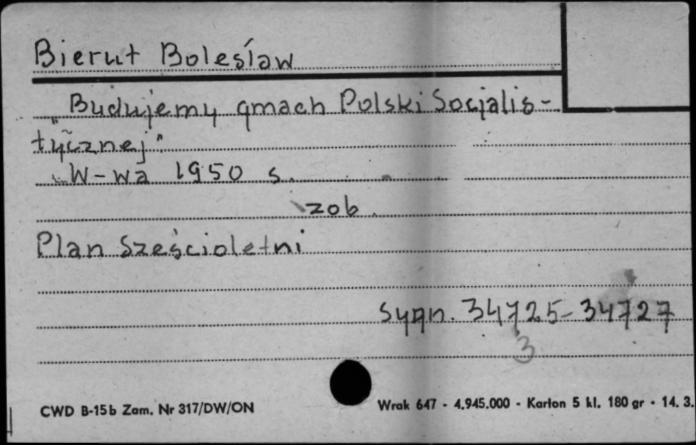 Bierut Bolesław
"Budujemy gmach Polski Socjalis-
tycznej"
W-wa 1950 s.
zob.
Plan Sześcioletni
Sygn. 34725-34727
3
CWD B-15b Zam. Nr 317/DW/ON
Wrak 647 - 4.945.000 - Karton 5 kl. 180 gr - 14. 3.